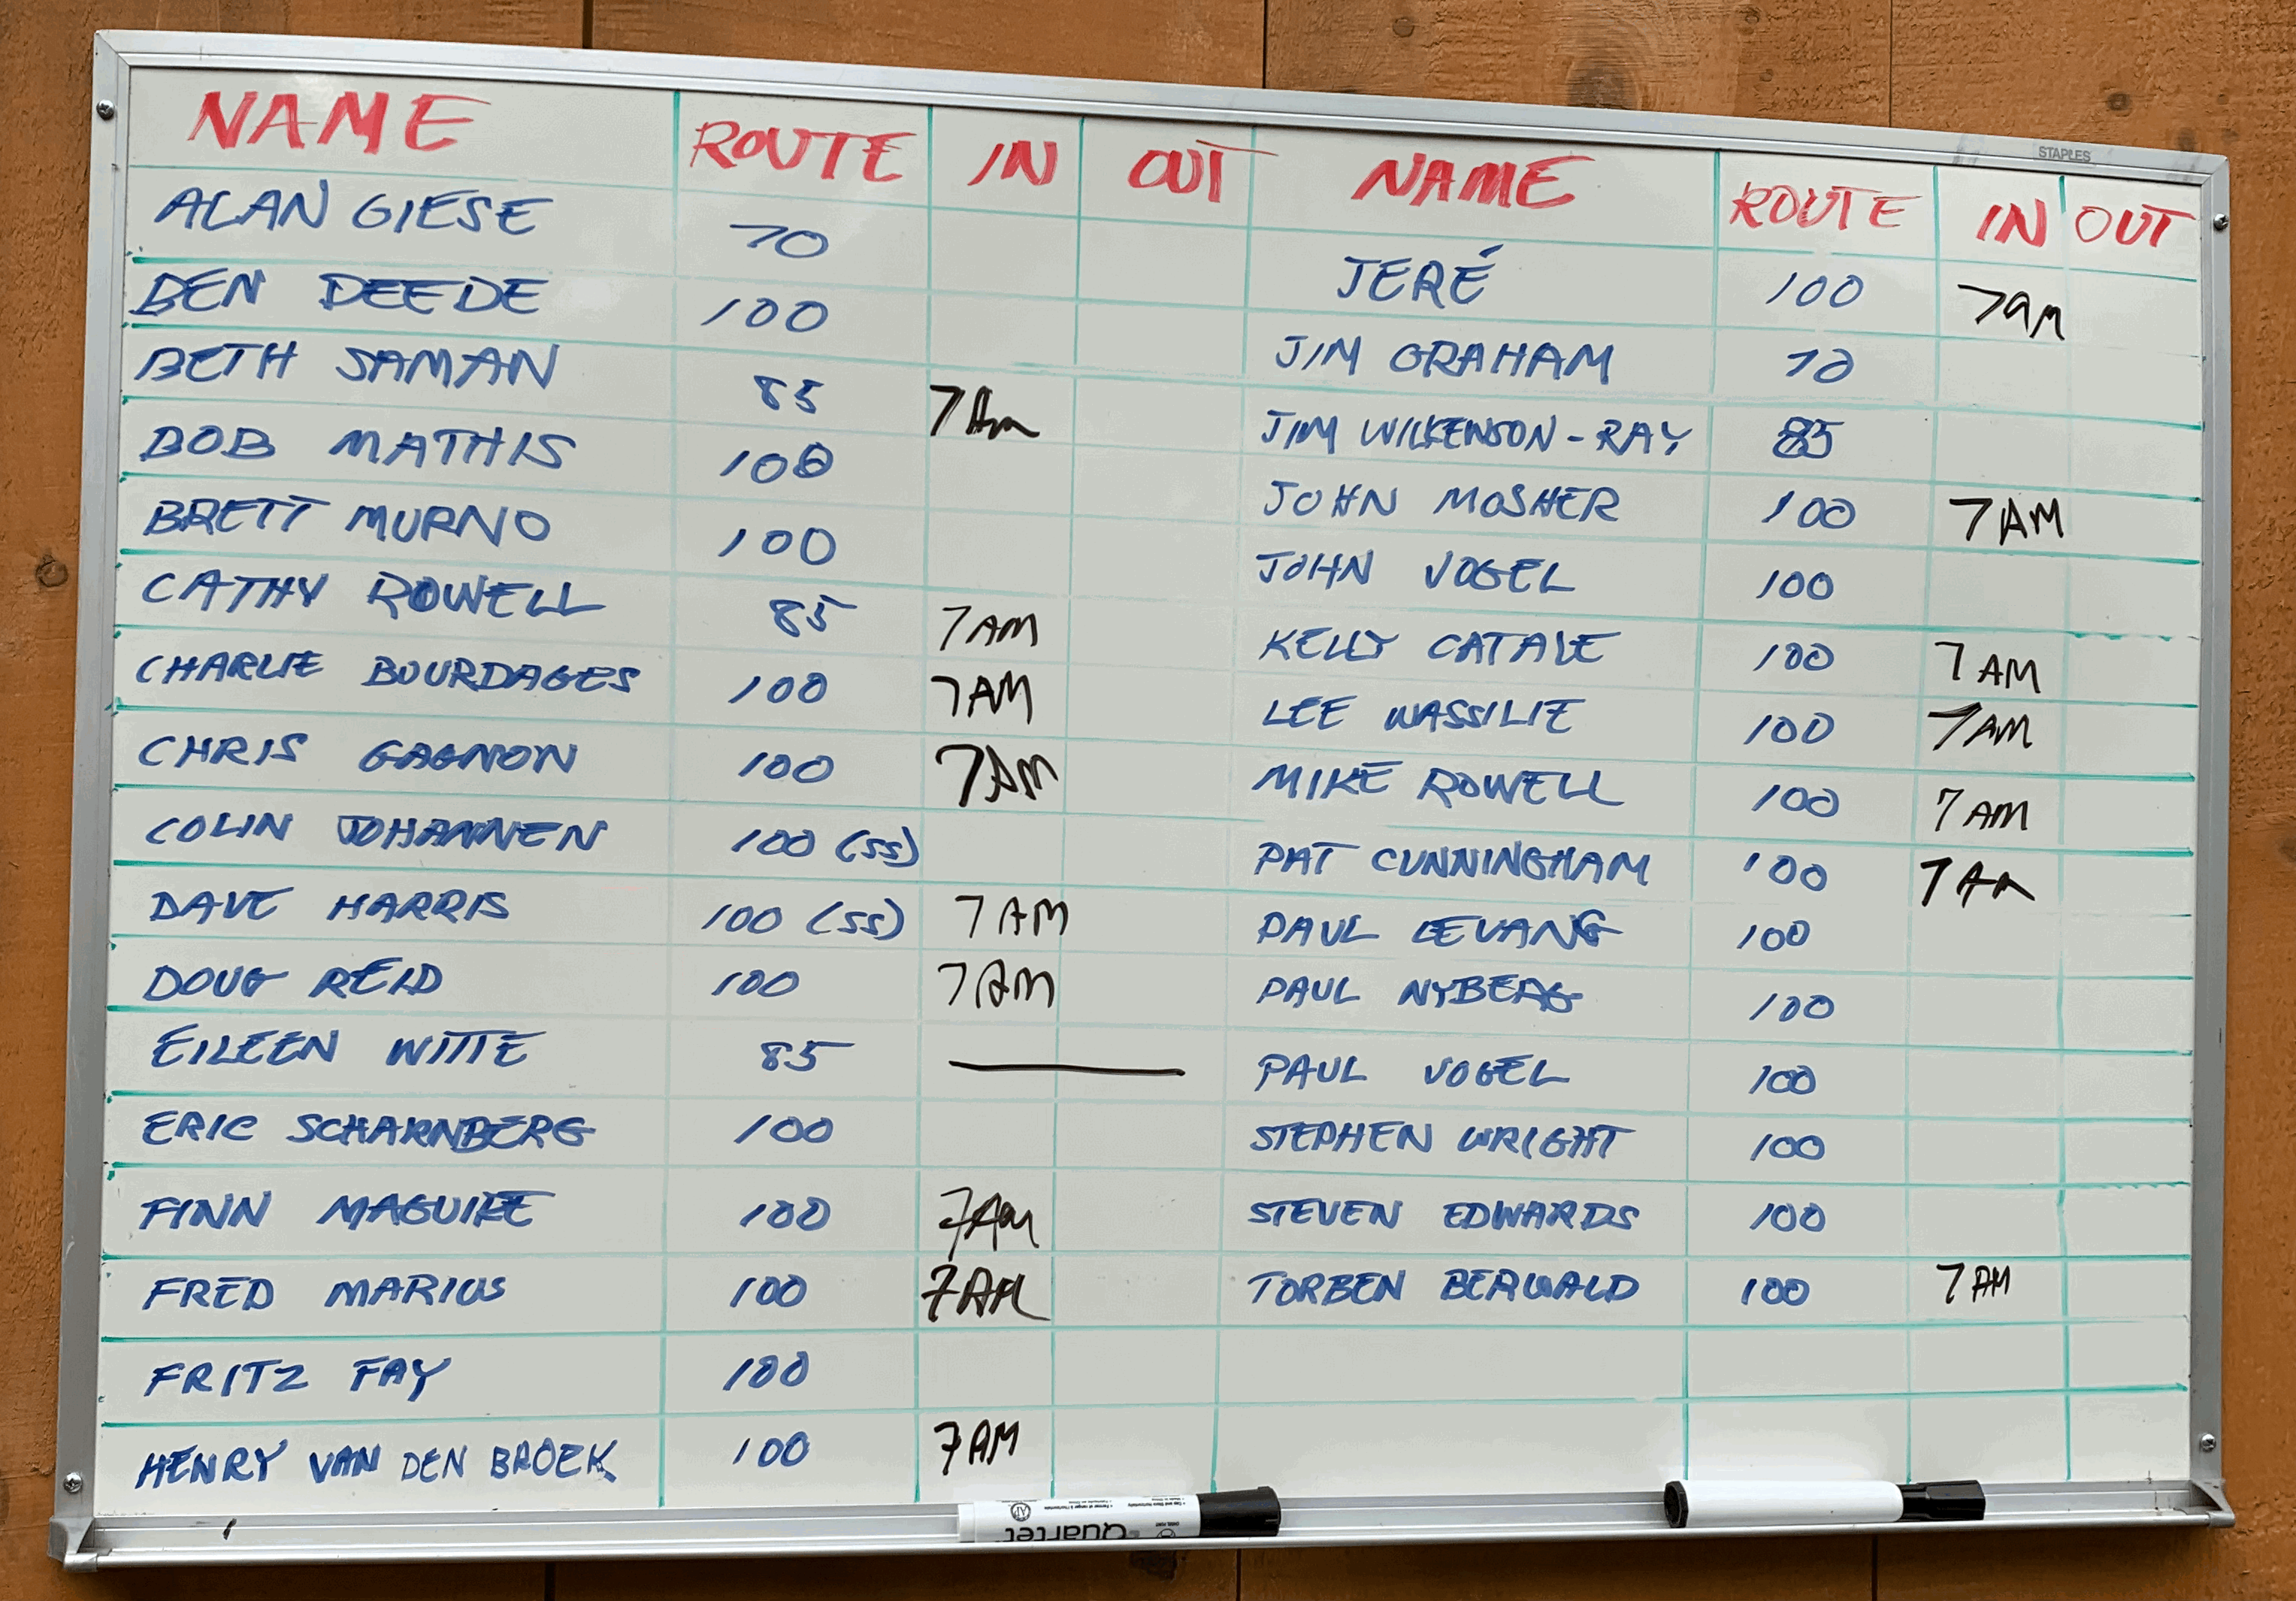 STAPLES
NAME ROUTE IN OUT NAME ROUTE IN OUT
ALAN GIESE 70
JERÉ 100 7AM
BEN DEEDE 100
JIM GRAHAM 70
BETH SAMAN 85 7AM
JIM WILKENSON-RAY 85
BOB MATHIS 100
JOHN MOSHER 100 7AM
BRETT MURNO 100
JOHN VOGEL 100
CATHY ROWELL 85 7AM
KELLY CATALE 100 7AM
CHARLIE BOURDAGES 100 7AM
LEE WASSILIE 100 7AM
CHRIS GAGNON 100 7AM
MIKE ROWELL 100 7AM
COLIN JOHANNEN 100 (SS)
PAT CUNNINGHAM 100 7AM
DAVE HARRIS 100 (SS) 7AM
PAUL LEVANG 100
DOUG REID 100 7AM
PAUL NYBERG 100
EILEEN WITTE 85
PAUL VOGEL 100
ERIC SCHARNBERG 100
STEPHEN WRIGHT 100
FINN MAGUIRE 100 7AM
STEVEN EDWARDS 100
FRED MARIUS 100 7AM
TORBEN BERWALD 100 7AM
FRITZ FAY 100
HENRY VAN DEN BROEK 100 7AM
Quartet